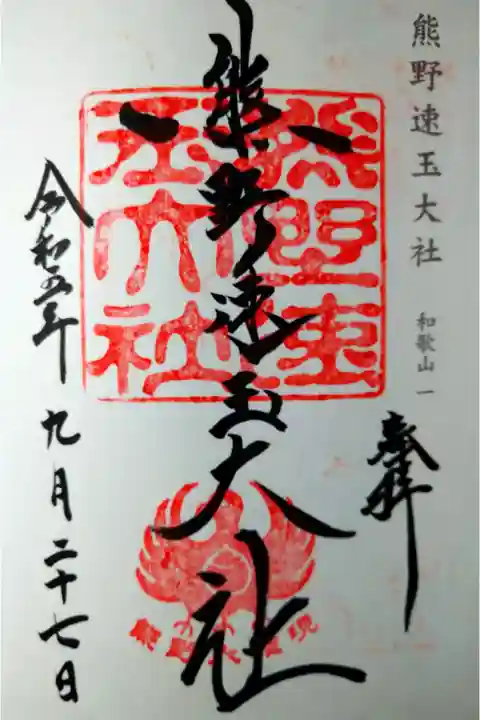 熊野速玉大社
和歌山一
奉拝
熊野速玉大社
熊野速
玉大社
令和五年九月二十七日